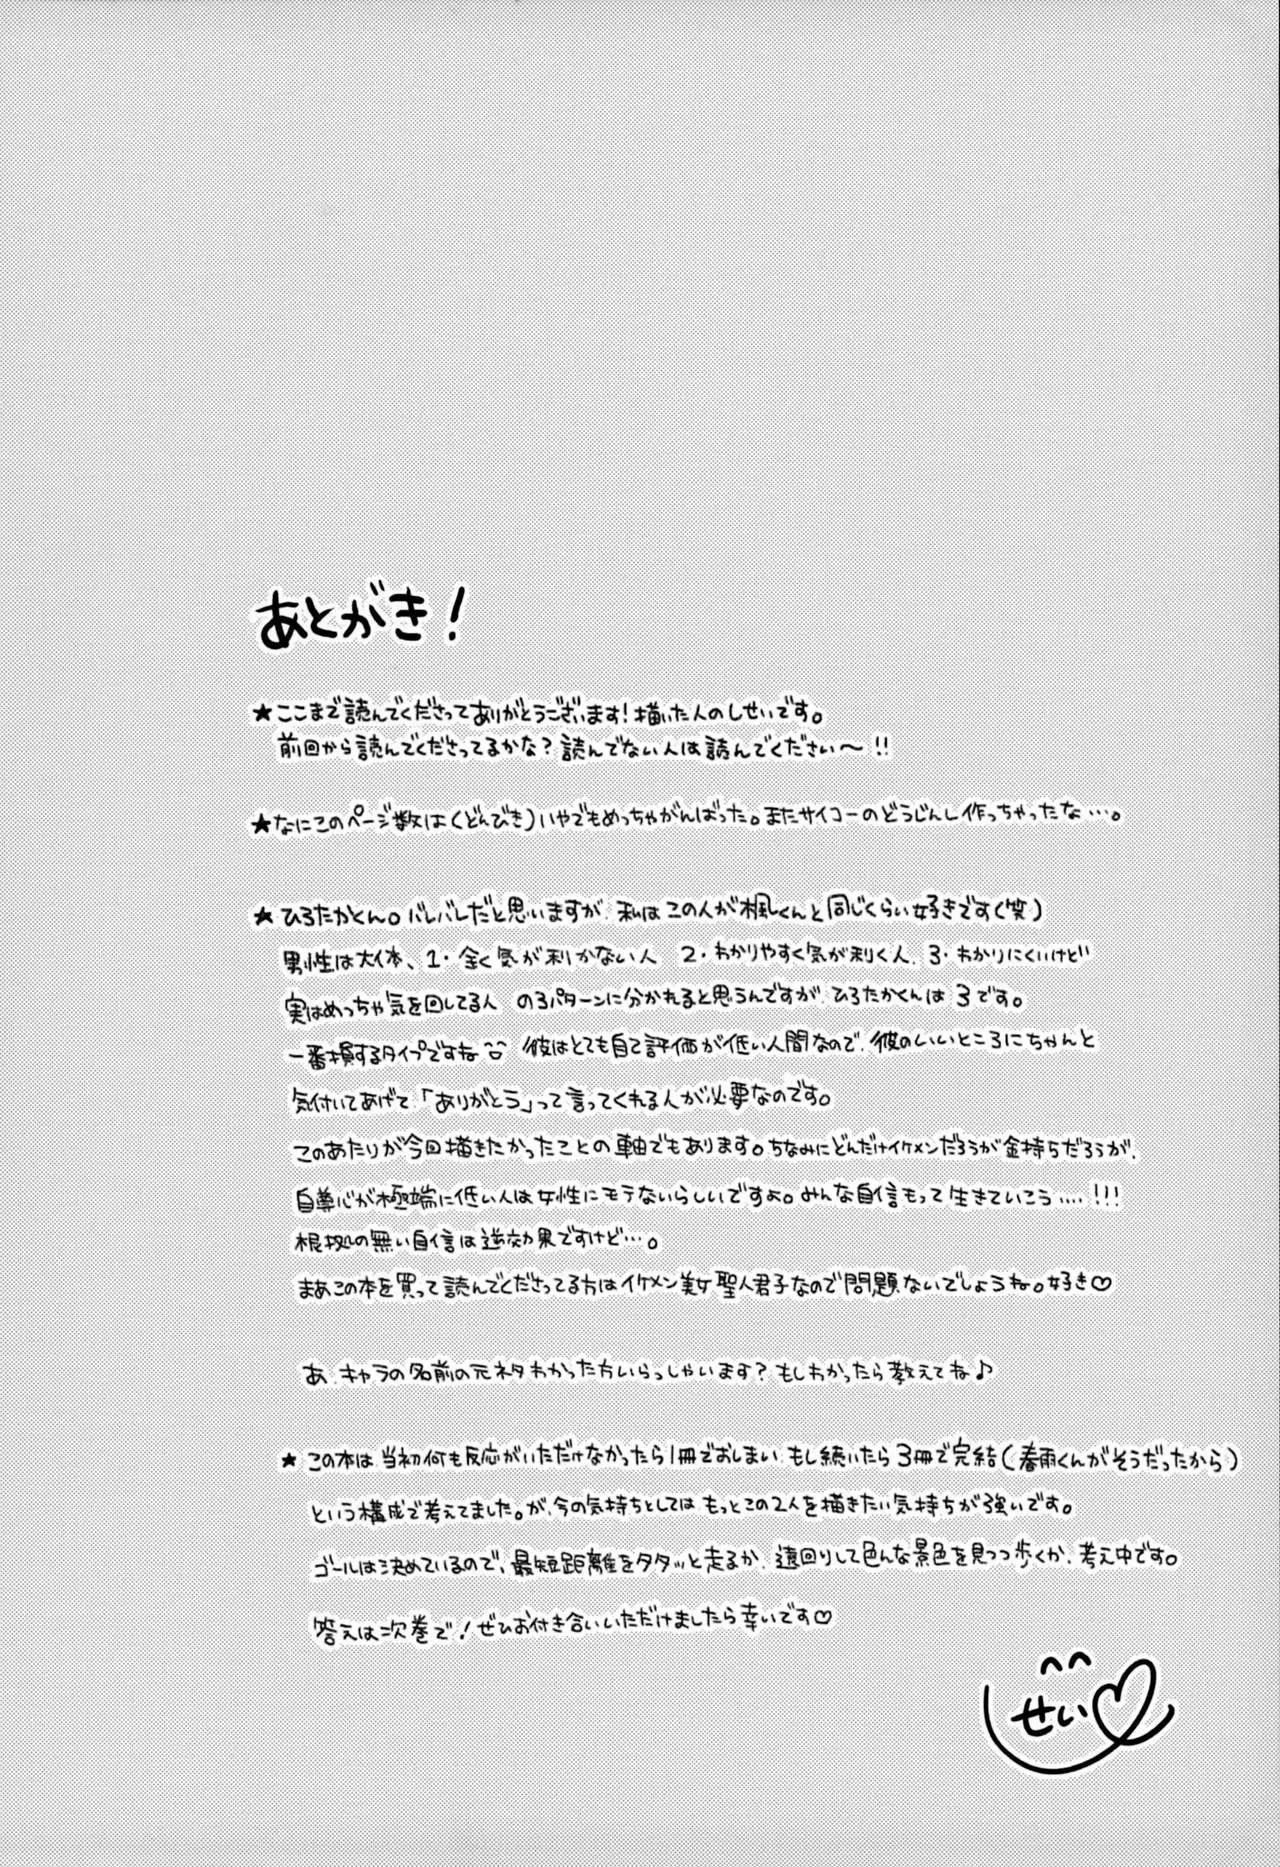 あとがき!
★ここまで読んでくださってありがとうございます!描いた人のしせいです。
前回から読んでくださってるかな?読んでない人は読んでください〜!!
★なにこのページ数は(どんびき)いやでもめっちゃがんばった。またサイコーのどうじんし作っちゃったな…。
★ひろたかくん。バレバレだと思いますが、私はこの人が楓くんと同じくらい好きです(笑)
男性は大体、1・全く気が利かない人 2・わかりやすく気が利く人、3・わかりにくいけど
実はめっちゃ気を回してる人 の3パターンに分かれると思うんですが、ひろたかくんは3です。
一番損するタイプですね 彼はとても自己評価が低い人間なので、彼のいいところにちゃんと
気付いてあげて、「ありがとう」って言ってくれる人が必要なのです。
このあたりが今回描きたかったことの軸でもあります。ちなみにどんだけイケメンだろうが金持ちだろうが、
自尊心が極端に低い人は女性にモテないらしいですよ。みんな自信もって生きていこう....!!!
根拠の無い自信は逆効果ですけど…。
まあこの本を買って読んでくださってる方はイケメン美女聖人君子なので問題ないでしょうね。好き♡
あ、キャラの名前の元ネタわかった方いらっしゃいます?もしわかったら教えてね♪
★この本は、当初何も反応がいただけなかったら1冊でおしまい、もし続いたら3冊で完結(春雨くんがそうだったから)
という構成で考えてました。が、今の気持ちとしてはもっとこの2人を描きたい気持ちが強いです。
ゴールは決めているので、最短距離をタタッと走るか、遠回りして色んな景色を見つつ歩くか、考え中です。
答えは次巻で!ぜひお付き合いいただけましたら幸いです♡
せい♡